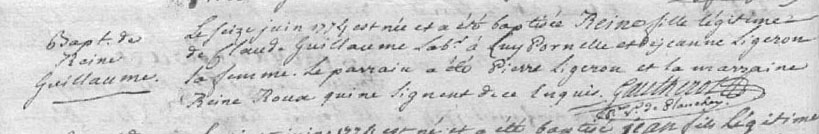 Bapt. de
Reine
Guillaume.
Le seize juin 1774 est née et a été baptisée Reine fille légitime
de Claude Guillaume lab.r à Cuy Pornelle et de jeanne Ligeron
sa femme. Le parrain a été Pierre Ligeron et la marraine
Reine Roux qui ne signent de ce enquis. Gautherot
de Planchez.
juin 1774 est né et a été baptisé jean fils légitime